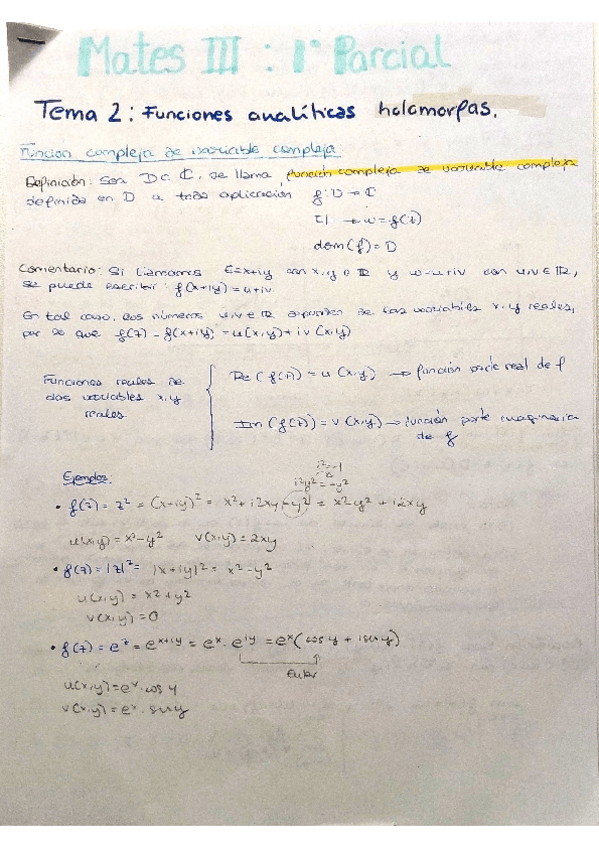 Mates III : 1er Parcial
Tema 2: Funciones analíticas holomorfas.
Función compleja de variable compleja
Definición: Sea D⊂ ℂ, se llama función compleja de variable compleja
definida en D a toda aplicación f: D → ℂ
z | → w = f(z)
dom(f) = D
Comentario: Si llamamos z=x+iy con x,y ∈ ℝ y w=u+iv con u,v ∈ ℝ,
se puede escribir: f(x+iy) = u+iv
En tal caso, los números u,v ∈ ℝ dependen de las variables x,y reales,
por lo que f(z) = f(x+iy) = u(x,y) + iv(x,y)
Funciones reales de
dos variables x,y
reales.
Re(f(z)) = u(x,y) → función parte real de f
Im(f(z)) = v(x,y) → función parte imaginaria
de f
Ejemplos:
i²=-1
i²y² = -y²
• f(z) = z² = (x+iy)² = x² + i2xy - y² = x²y² + i2xy
u(x,y) = x²-y² v(x,y) = 2xy
• f(z) = |z|² = |x+iy|² = x² - y²
u(x,y) = x² + y²
v(x,y) = 0
• f(z) = e^z = e^x+iy = e^x · e^iy = e^x (cos y + i sen y)
Euler
u(x,y) = e^x · cos y
v(x,y) = e^x · sen y